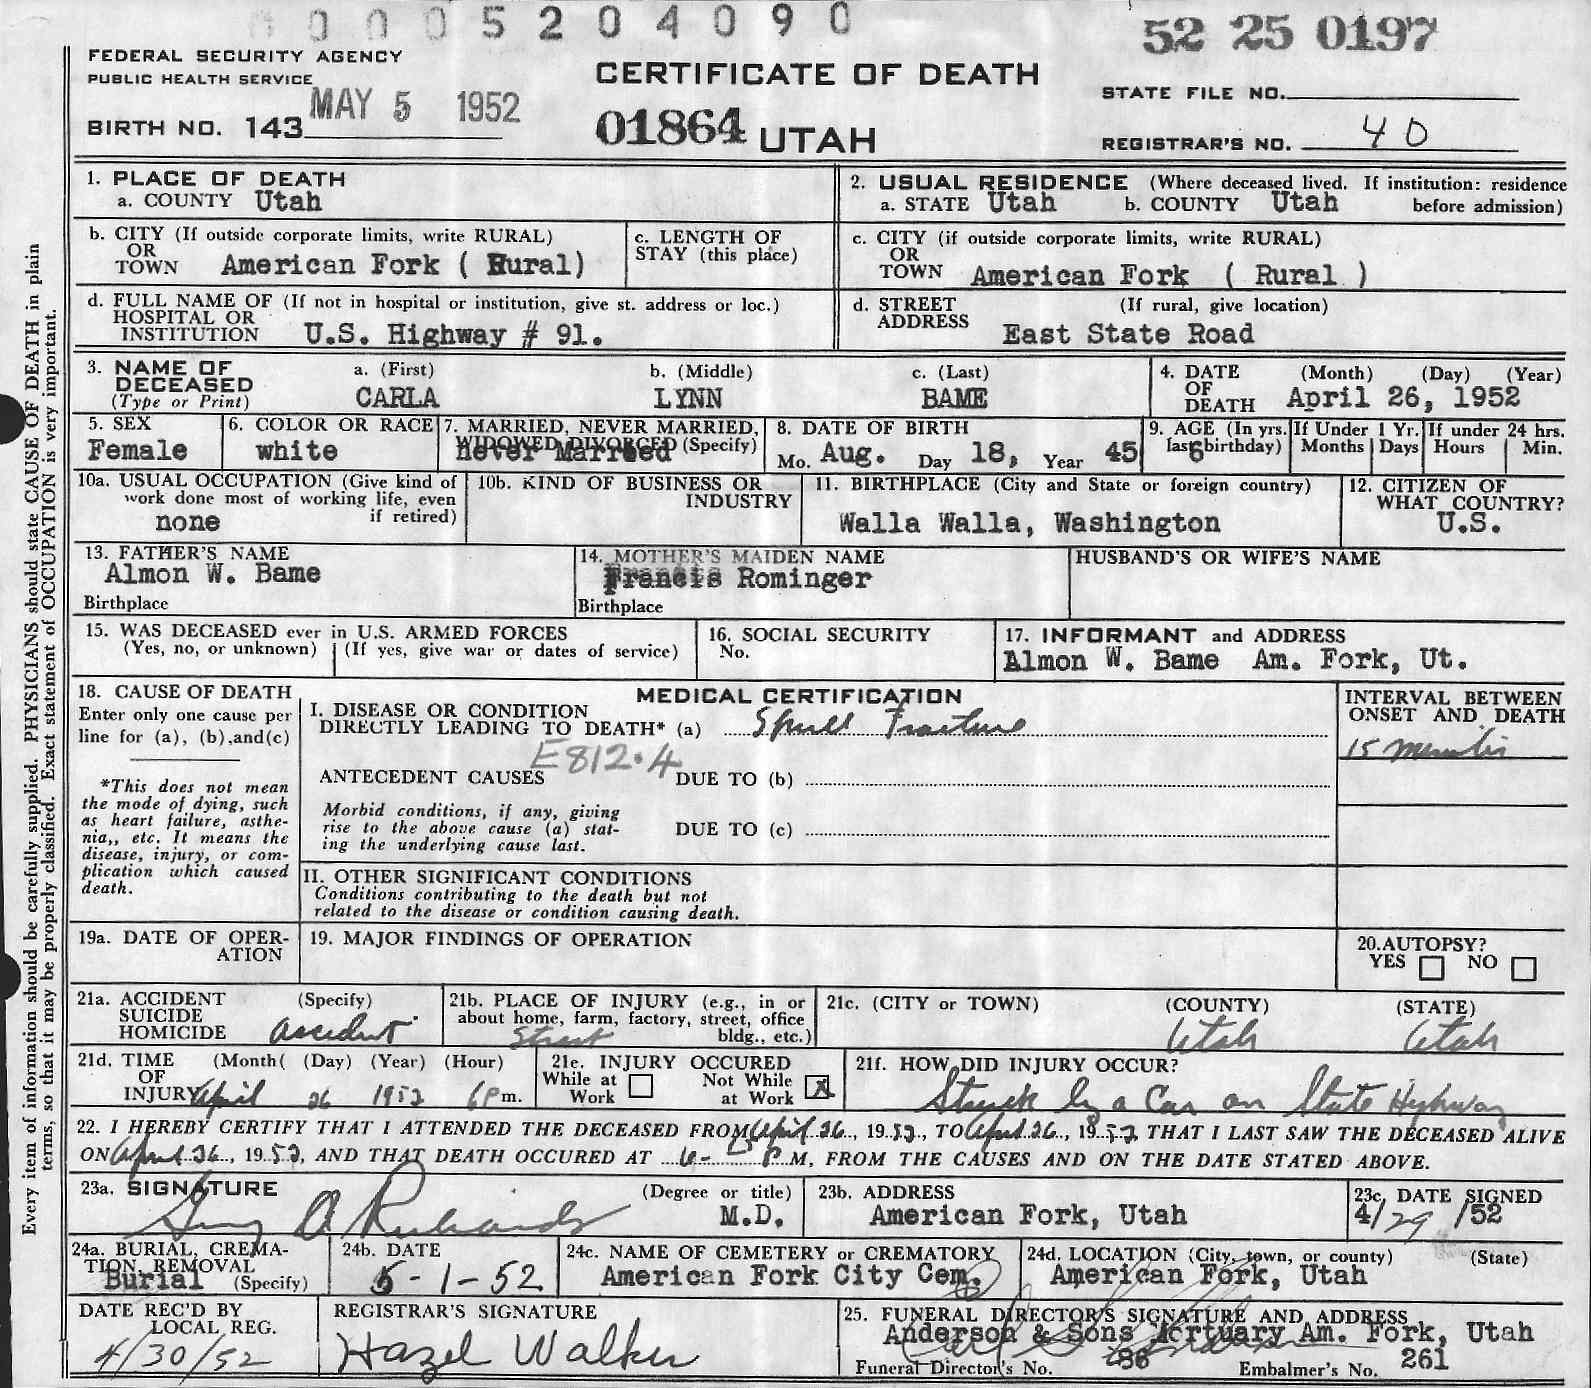 0 0 0 5 2 0 4 0 9 0
52 25 0197
FEDERAL SECURITY AGENCY
PUBLIC HEALTH SERVICE
MAY 5 1952
BIRTH NO. 143
CERTIFICATE OF DEATH
01864 UTAH
STATE FILE NO.
REGISTRAR'S NO. 40
Every item of information should be carefully supplied. PHYSICIANS should state CAUSE OF DEATH in plain
terms, so that it may be properly classified. Exact statement of OCCUPATION is very important.
1. PLACE OF DEATH
a. COUNTY Utah
2. USUAL RESIDENCE (Where deceased lived. If institution: residence
a. STATE Utah b. COUNTY Utah before admission)
b. CITY (If outside corporate limits, write RURAL)
OR
TOWN American Fork ( Rural)
c. LENGTH OF
STAY (this place)
c. CITY (if outside corporate limits, write RURAL)
OR
TOWN American Fork ( Rural )
d. FULL NAME OF (If not in hospital or institution, give st. address or loc.)
HOSPITAL OR
INSTITUTION U.S. Highway # 91.
d. STREET (If rural, give location)
ADDRESS East State Road
3. NAME OF
DECEASED
(Type or Print)
a. (First)
CARLA
b. (Middle)
LYNN
c. (Last)
BAME
4. DATE (Month) (Day) (Year)
OF
DEATH April 26, 1952
5. SEX
Female
6. COLOR OR RACE
white
7. MARRIED, NEVER MARRIED,
WIDOWED DIVORCED (Specify)
never Marreed
8. DATE OF BIRTH
Mo. Aug. Day 18, Year 45
9. AGE (In yrs.
last birthday) 6
If Under 1 Yr.
Months Days
If under 24 hrs.
Hours Min.
10a. USUAL OCCUPATION (Give kind of
work done most of working life, even
if retired)
none
10b. KIND OF BUSINESS OR
INDUSTRY
11. BIRTHPLACE (City and State or foreign country)
Walla Walla, Washington
12. CITIZEN OF
WHAT COUNTRY?
U.S.
13. FATHER'S NAME
Almon W. Bame
Birthplace
14. MOTHER'S MAIDEN NAME
Francis Rominger
Birthplace
HUSBAND'S OR WIFE'S NAME
15. WAS DECEASED ever in U.S. ARMED FORCES
(Yes, no, or unknown) (If yes, give war or dates of service)
16. SOCIAL SECURITY
No.
17. INFORMANT and ADDRESS
Almon W. Bame Am. Fork, Ut.
18. CAUSE OF DEATH
Enter only one cause per
line for (a), (b),and(c)
*This does not mean
the mode of dying, such
as heart failure, asthe-
nia,, etc. It means the
disease, injury, or com-
plication which caused
death.
MEDICAL CERTIFICATION
I. DISEASE OR CONDITION
DIRECTLY LEADING TO DEATH* (a) Skull Fracture
E812.4
ANTECEDENT CAUSES DUE TO (b)
Morbid conditions, if any, giving
rise to the above cause (a) stat-
ing the underlying cause last.
DUE TO (c)
II. OTHER SIGNIFICANT CONDITIONS
Conditions contributing to the death but not
related to the disease or condition causing death.
INTERVAL BETWEEN
ONSET AND DEATH
15 minutes
19a. DATE OF OPER-
ATION
19. MAJOR FINDINGS OF OPERATION
20.AUTOPSY?
YES NO
21a. ACCIDENT (Specify)
SUICIDE
HOMICIDE accident
21b. PLACE OF INJURY (e.g., in or
about home, farm, factory, street, office
bldg., etc.)
Street
21c. (CITY or TOWN) (COUNTY) (STATE)
Utah Utah
21d. TIME (Month( (Day) (Year) (Hour)
OF
INJURY April 26 1952 6 P m.
21e. INJURY OCCURED
While at Work
Not While at Work X
21f. HOW DID INJURY OCCUR?
Struck by a Car on State Highway
22. I HEREBY CERTIFY THAT I ATTENDED THE DECEASED FROM April 26, 1952, TO April 26, 1952 THAT I LAST SAW THE DECEASED ALIVE
ON April 26, 1952, AND THAT DEATH OCCURED AT 6-15 P M, FROM THE CAUSES AND ON THE DATE STATED ABOVE.
23a. SIGNATURE (Degree or title)
Guy A Richards M.D.
23b. ADDRESS
American Fork, Utah
23c. DATE SIGNED
4/29/52
24a. BURIAL, CREMA-
TION, REMOVAL
Burial (Specify)
24b. DATE
5-1-52
24c. NAME OF CEMETERY or CREMATORY
American Fork City Cem.
24d. LOCATION (City, town, or county) (State)
American Fork, Utah
DATE REC'D BY
LOCAL REG.
4/30/52
REGISTRAR'S SIGNATURE
Hazel Walker
25. FUNERAL DIRECTOR'S SIGNATURE AND ADDRESS
Anderson & Sons Mortuary Am. Fork, Utah
Funeral Director's No. Embalmer's No. 261